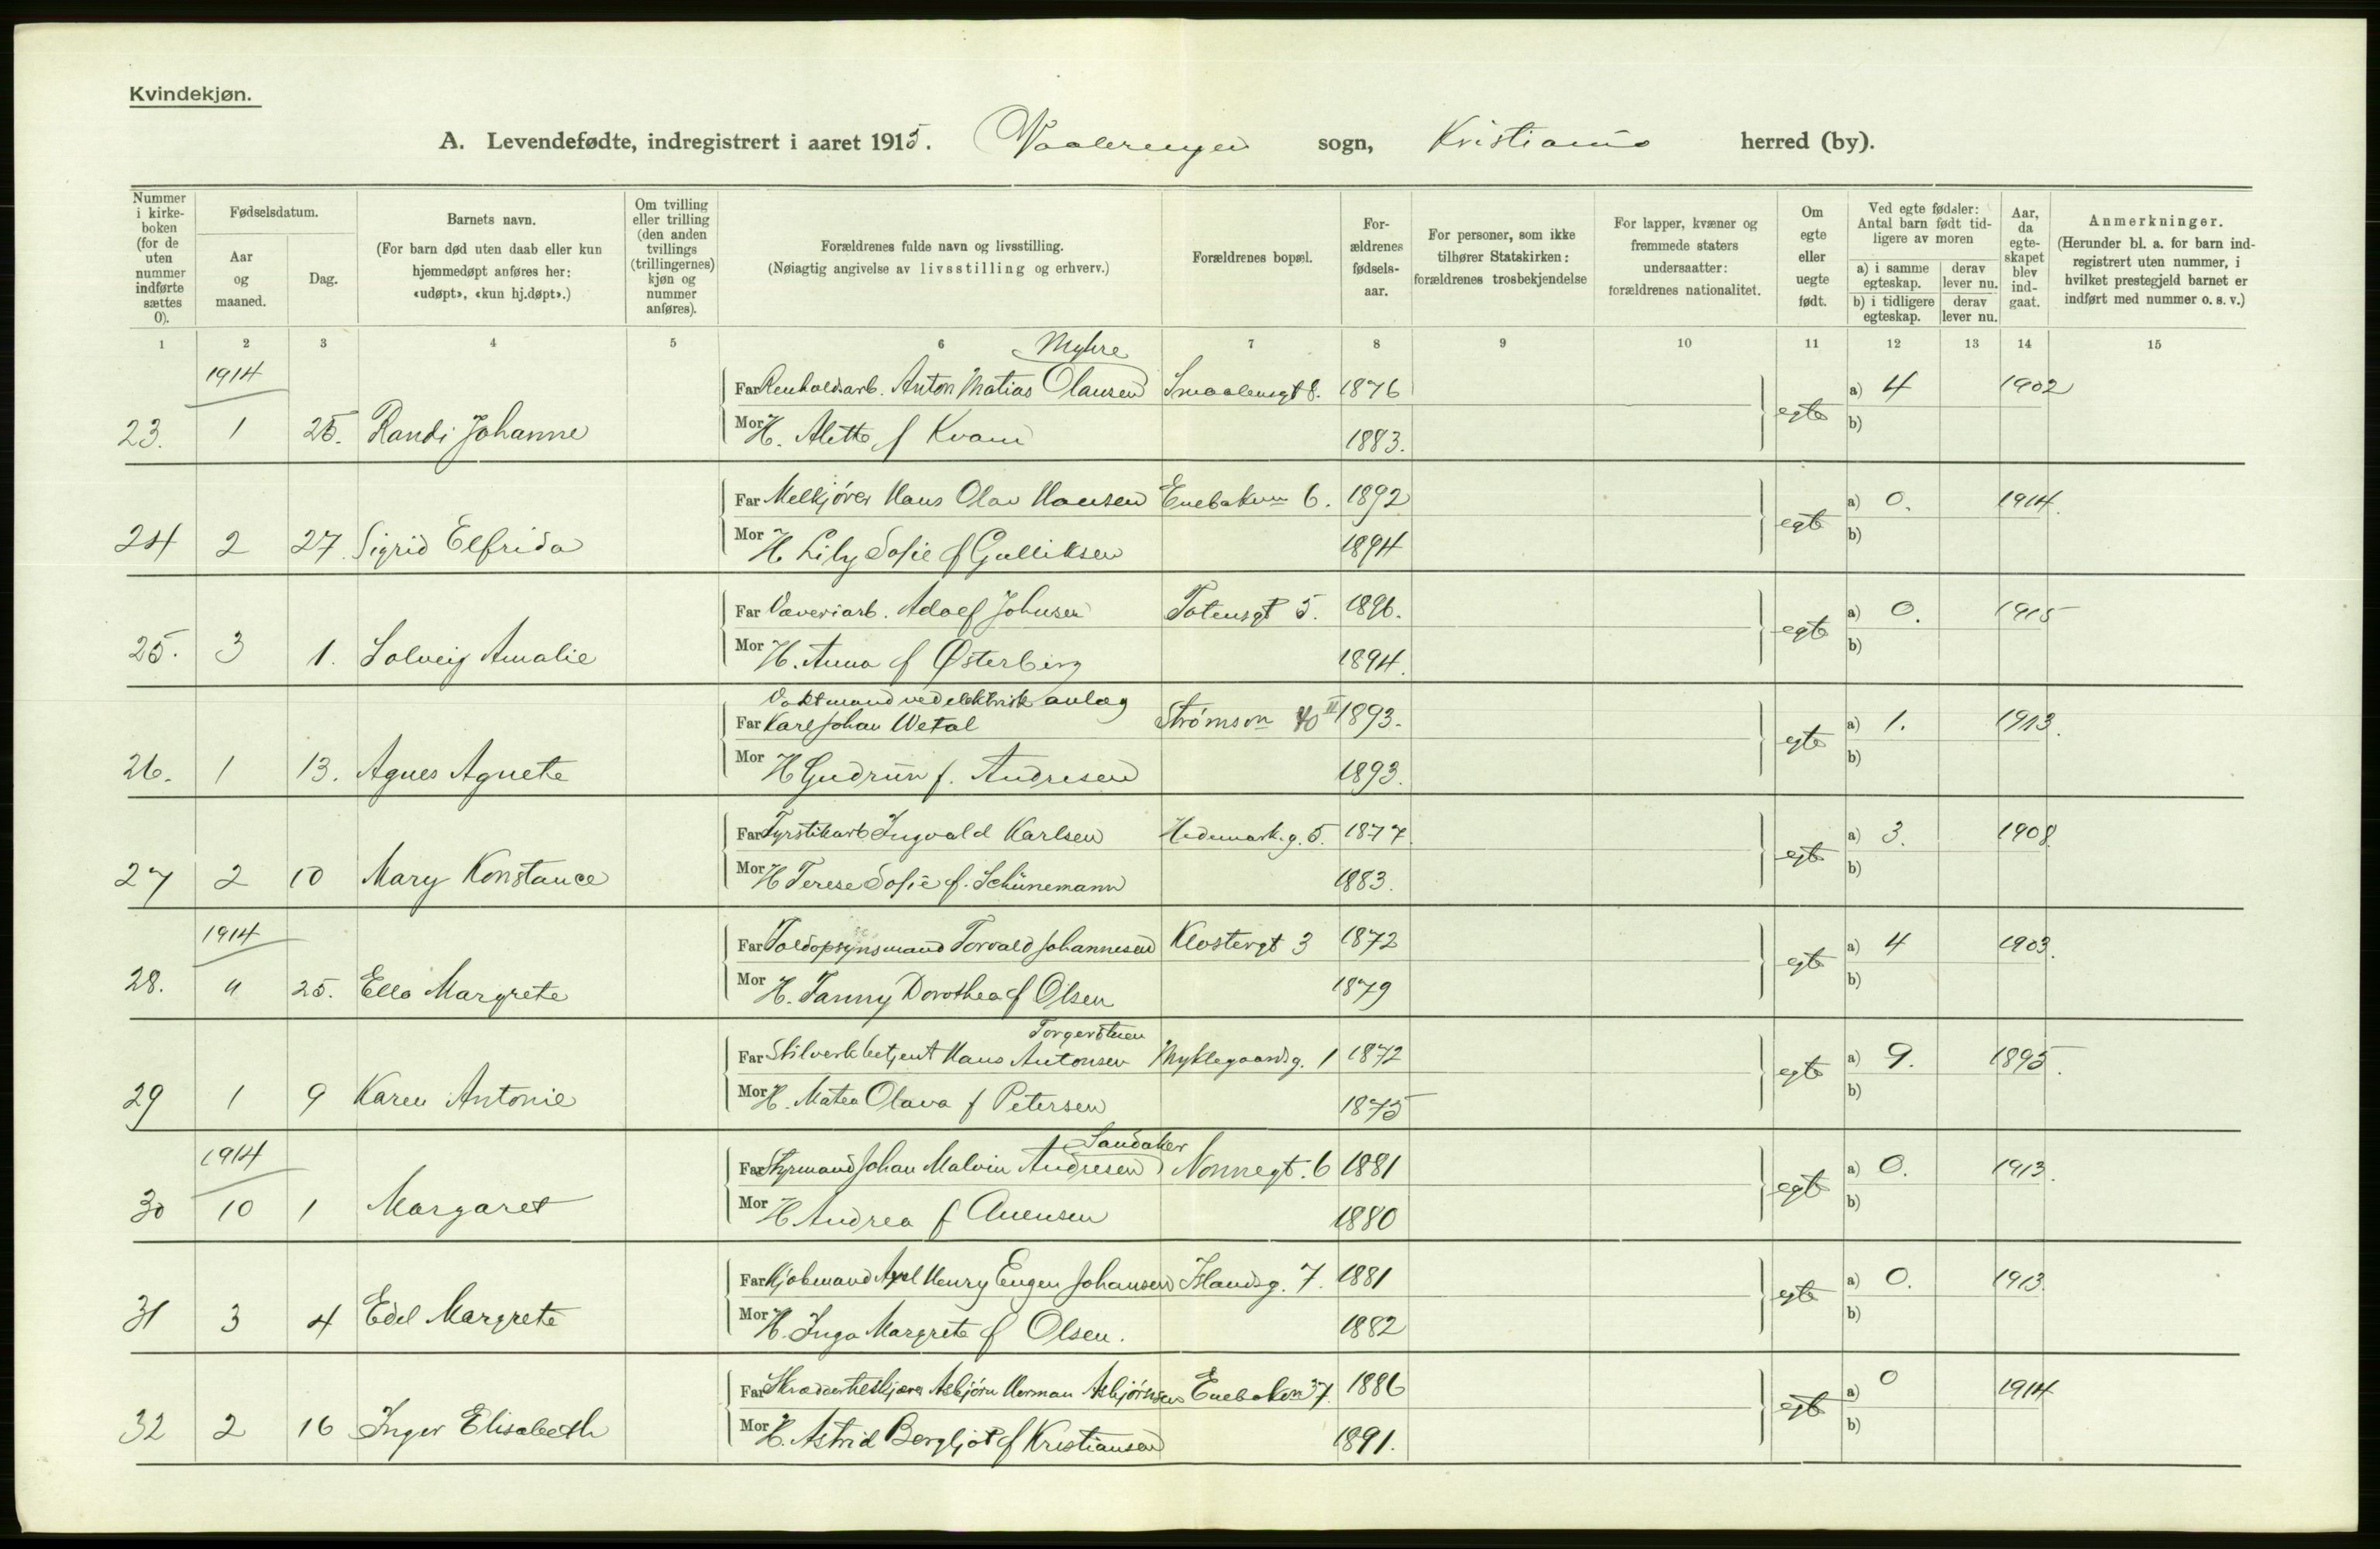 Kvindekjøn.
A. Levendefødte, indregistrert i aaret 1915. Vaalerengen sogn, Kristiania herred (by).
Nummer i kirkeboken (for de uten nummer indførte sættes 0).
Fødselsdatum.
Aar og maaned.
Dag.
Barnets navn.
(For barn død uten daab eller kun hjemmedøpt anføres her: «udøpt», «kun hj.døpt».)
Om tvilling eller trilling (den anden tvillings (trillingernes) kjøn og nummer anføres).
Forældrenes fulde navn og livsstilling.
(Nøiagtig angivelse av livsstilling og erhverv.)
Forældrenes bopæl.
Forældrenes fødselsaar.
For personer, som ikke tilhører Statskirken: forældrenes trosbekjendelse
For lapper, kvæner og fremmede staters undersaatter: forældrenes nationalitet.
Om egte eller uegte født.
Ved egte fødsler: Antal barn født tidligere av moren
a) i samme egteskap. derav lever nu.
b) i tidligere egteskap. derav lever nu.
Aar, da egteskapet blev indgaat.
Anmerkninger.
(Herunder bl. a. for barn indregistrert uten nummer, i hvilket prestegjeld barnet er indført med nummer o. s. v.)
1 2 3 4 5 6 7 8 9 10 11 12 13 14 15
1914 Myhre
Far Renholdsarb. Anton Matias Olausen Smaalensgt 8. 1876 a) 4 1902
23. 1 25. Randi Johanne Mor H. Alette f Kvam 1883. egte b)
Far Melkjører Hans Olav Hansen Enebakvn 6. 1892 a) 0. 1914.
24 2 27. Sigrid Elfrida Mor H Lily Sofie f Gulliksen 1894 egte b)
Far Væveriarb. Adolf Johnsen Totensgt 5. 1896. a) 0. 1915
25. 3 1. Solveig Amalie Mor H. Anna f Østerberg 1894. egte b)
Vaktmand ved elektrisk anlæg
Far Karl Johan Wetal Strømsvn 40 II 1893. a) 1. 1913.
26. 1 13. Agnes Agnete Mor H Gudrun f. Andresen 1893. egte b)
Far Fyrstikarb Ingvald Karlsen Hedemark.g. 5. 1877. a) 3. 1908.
27 2 10 Mary Konstance Mor H Terese Sofie f. Schünemann 1883. egte b)
1914
Far Toldopsynsmand Torvald Johannesen Klostergt 3 1872 a) 4 1903.
28. 11 25. Ella Margrete Mor H. Fanny Dorothea f Olsen 1879 egte b)
Torgerstuen
Far Skilverkbetjent Hans Antonsen Myklegaardsg. 1 1872 a) 9. 1895.
29 1 9 Karen Antonie Mor H. Matea Olava f Petersen 1875 egte b)
1914 Sandaker
Far Styrmand Johan Malvin Andresen Nonnegt. 6 1881 a) 0. 1913.
30 10 1 Margaret Mor H Andrea f 1880 egte b)
Far Kjøbmand Axel Henry Eugen Johansen Islandsg. 7. 1881 a) 0. 1913.
31 3 4 Edel Margrete Mor H. Inga Margrete f Olsen. 1882 egte b)
Far Skrædertilskjærer Asbjørn Herman Asbjørnsen Enebakvn 37. 1886 a) 0 1914
32 2 16 Inger Elisabeth Mor H. Astrid Bergljot f Kristiansen 1891. egte b)